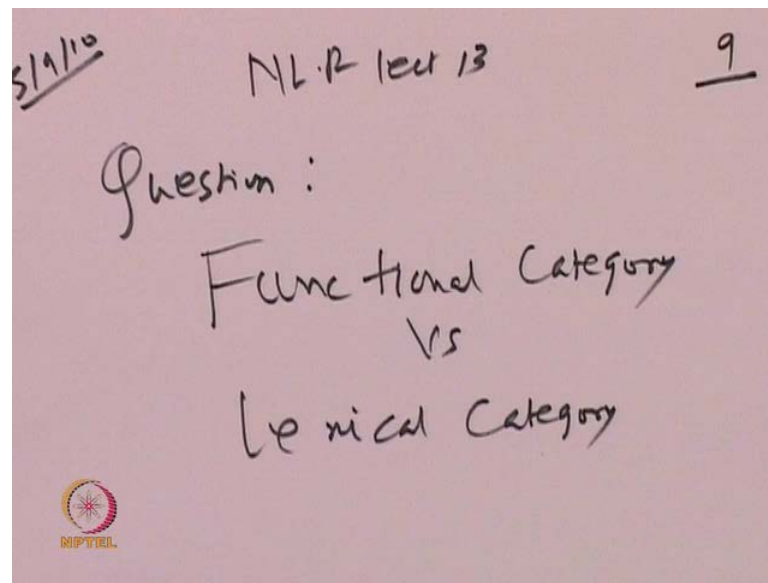 5/9/10
NLP lect 13
9
Question :
Functional Category
Vs
Lexical Category
NPTEL